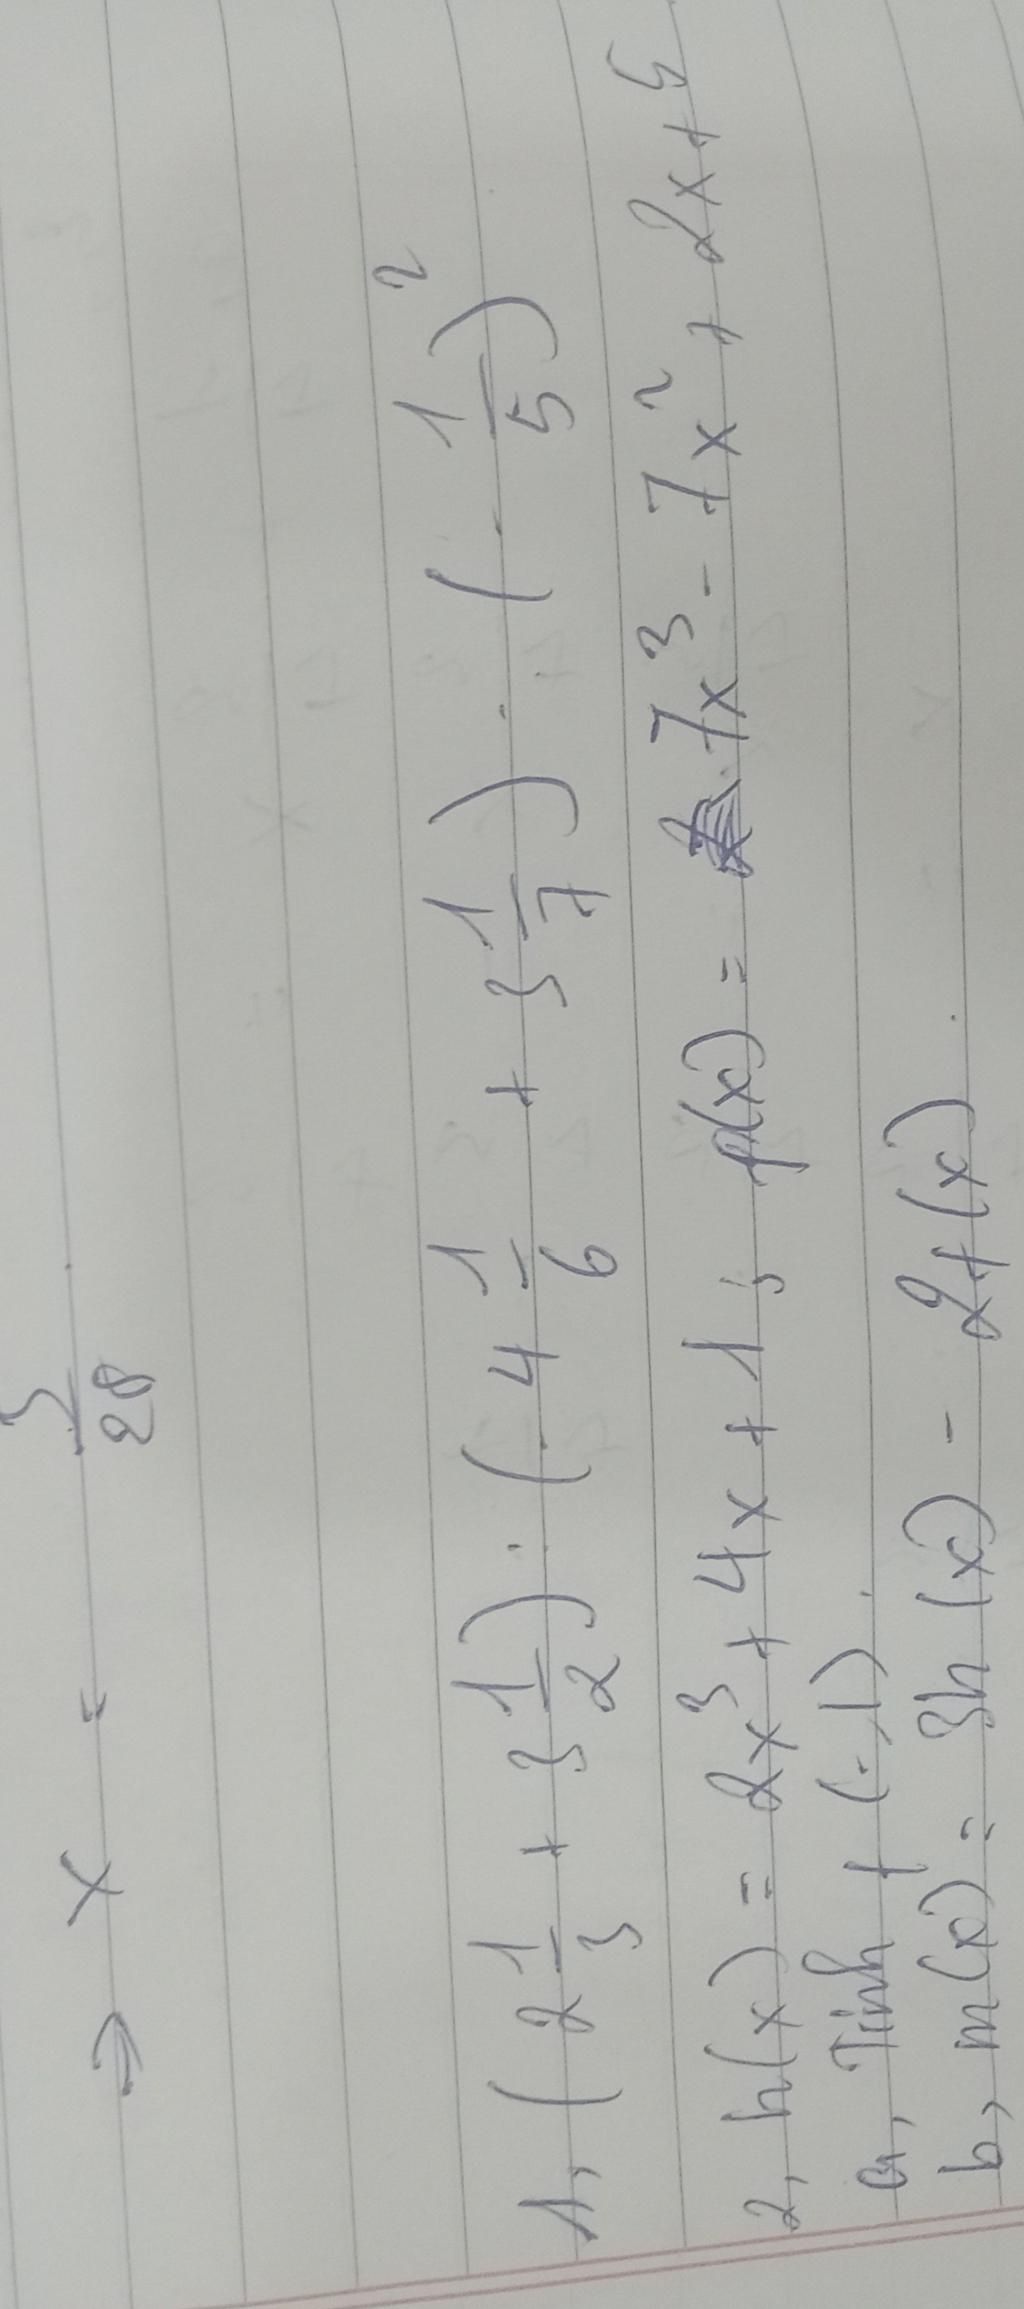 → x = 5/28
1, (2 1/3 + 3 1/2) : (- 4 1/6 + 3 1/7) . (- 1/5)²
2, h(x) = 2x³ + 4x + 1 ; f(x) = 7x³ - 7x² + 2x + 5
a, Tính f (-1).
b, m(x) = 3h (x) - 2f(x).